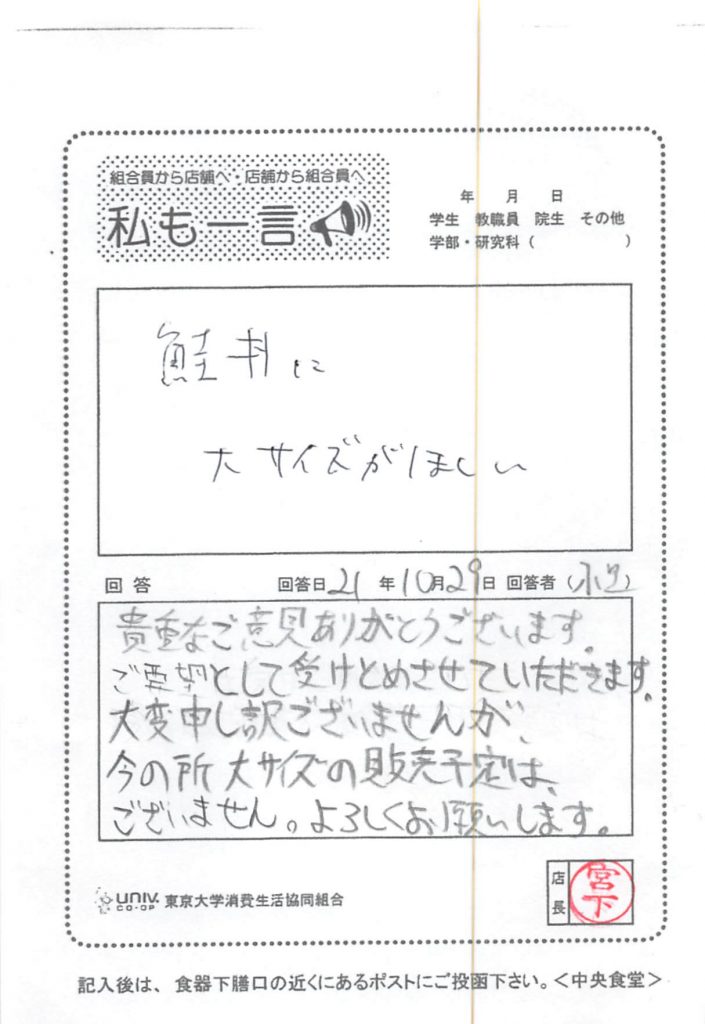 組合員から店舗へ・店舗から組合員へ
私も一言
年 月 日
学生 教職員 院生 その他
学部・研究科（ ）
鮭丼に
大サイズがほしい
回答 回答日 21 年 10 月 29 日 回答者（ ）
貴重なご意見ありがとうございます。
ご要望として受けとめさせていただきます。
大変申し訳ございませんが、
今の所 大サイズの販売予定は、
ございません。よろしくお願いします。
UNIV. CO-OP 東京大学消費生活協同組合
店長 宮下
記入後は、食器下膳口の近くにあるポストにご投函下さい。＜中央食堂＞